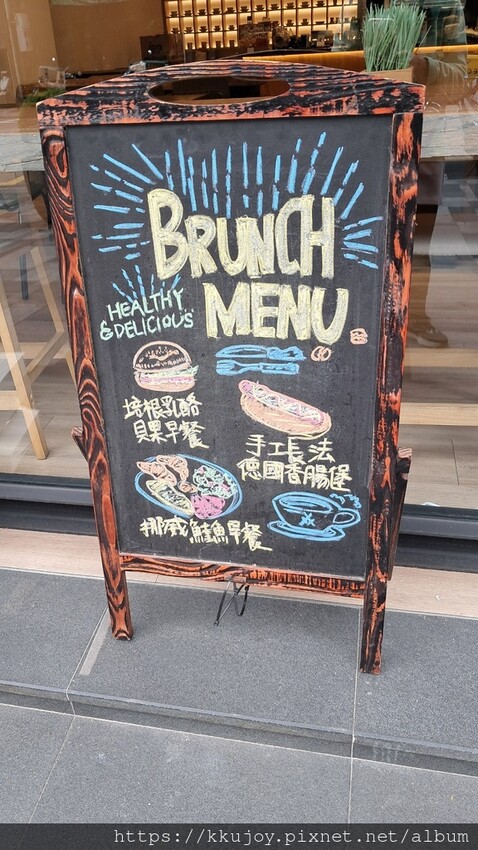 BRUNCH
MENU
HEALTHY
& DELICIOUS
培根乳酪
貝果早餐
手工長法
德國香腸堡
挪威鮭魚早餐
https://kkujoy.pixnet.net/album